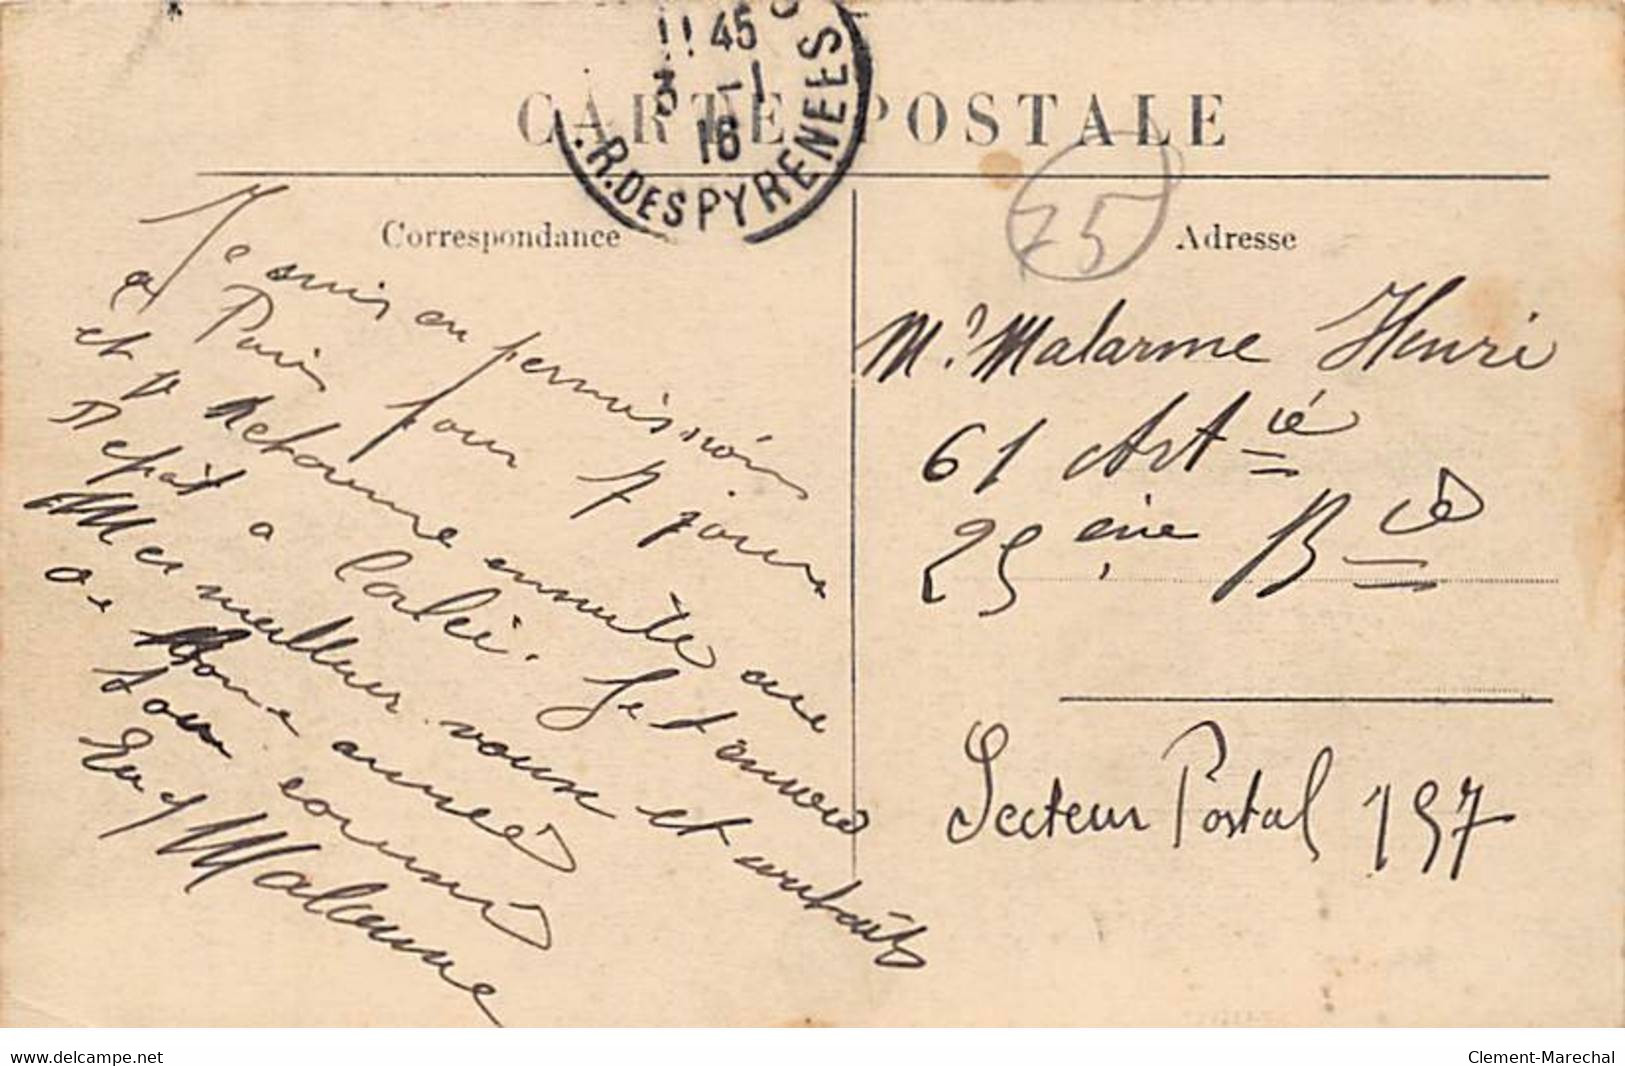 11 45
3 -1
16
R. DES PYRENEES
CARTE POSTALE
Correspondance
Adresse
75
Je suis en permission
a Paris pour 7 jours
et retourne ensuite au
Depôt a Je t'envoie
Mes meilleur voeux et souhaits
de Bonne année
Ton cousin
Eug Mallarme
Mr Malarme Henri
61 Artie
25 ème Bie
Secteur Postal 197
www.delcampe.net
Clement-Marechal